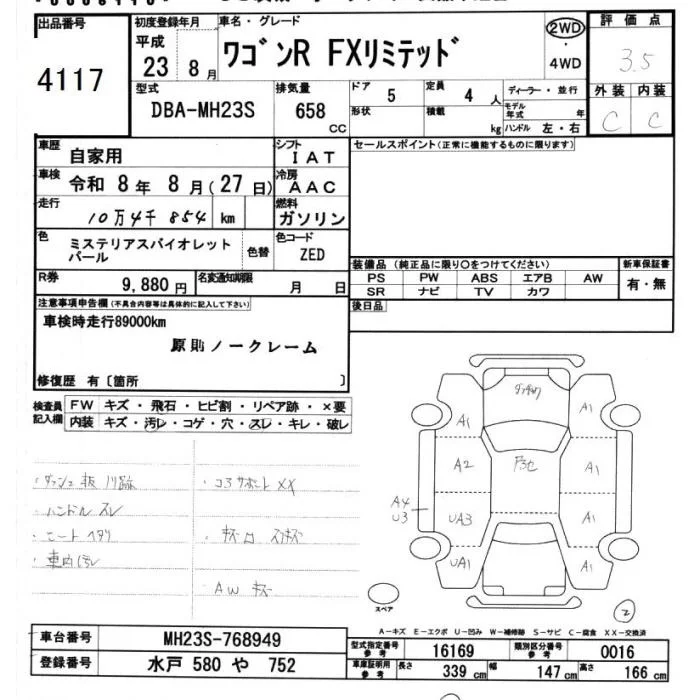 出品番号 初度登録年月 車名・グレード 2WD 評価点
4117 平成 23 8月 ワゴンR FXリミテッド ・4WD 3.5
型式 排気量 ドア 定員 ディーラー・並行 外装 内装
DBA-MH23S 658 cc 5 4人 モデル年式 年 C C
形状 積載 kg ハンドル 左・右
車歴 自家用 シフト IAT セールスポイント(正常に機能するものに限ります)
車検 令和 8年 8月(27日) 冷房 AAC
走行 10万4千854 km 燃料 ガソリン
色 ミステリアスバイオレットパール 色替 色コード ZED
装備品 (純正品に限り〇をつけてください) 新車保証書
R券 9,880円 名変通知期限 月 日 PS PW ABS エアB AW 有・無
SR ナビ TV カワ
注意事項申告欄(不具合内容等は具体的に記入して下さい) 後日品
車検時走行89000km
原則ノークレーム
修復歴 有〔箇所 〕
検査員記入欄 FW キズ・飛石・ヒビ割・リペア跡・×要
内装 キズ・汚レ・コゲ・穴・スレ・キレ・破レ
・ハンドル スレ
・車内汚レ
AW キズ
A1 A1
A2 A1
A4 U3 UA3 A1
UA1 A1
スペア 2
A-キズ E-エクボ U-凹み W-補修跡 S-サビ C-腐食 XX-交換済
車台番号 MH23S-768949 型式指定番号 参考 16169 類別区分番号 参考 0016
登録番号 水戸 580 や 752 車庫証明用 参考 長さ 339 cm 幅 147 cm 高さ 166 cm